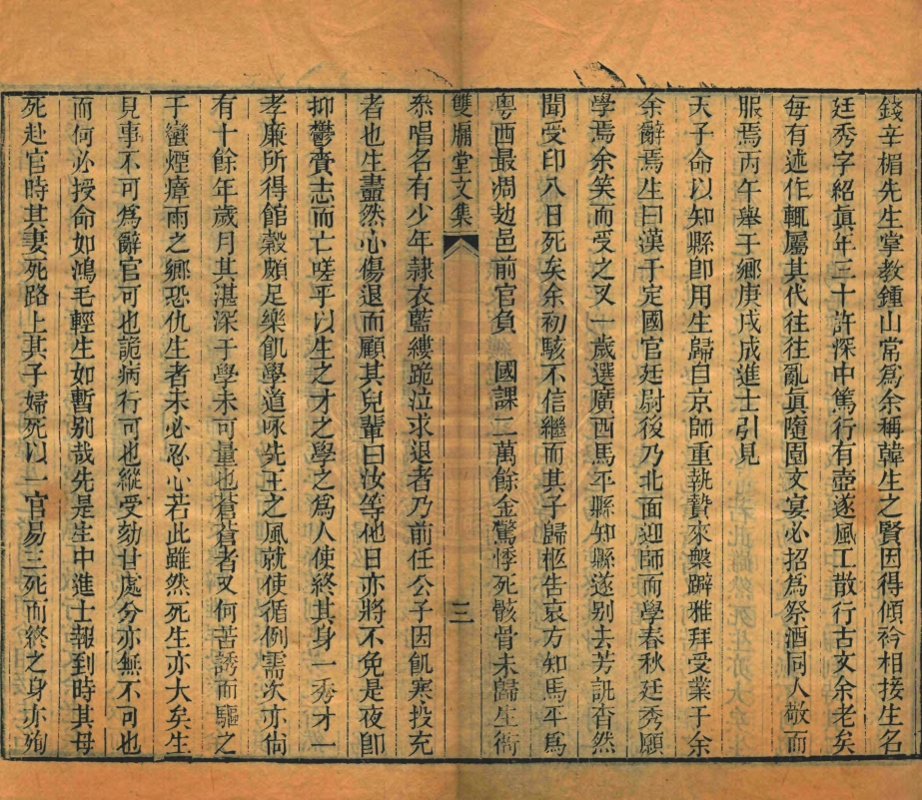 錢辛楣先生掌教鍾山常爲余稱韓生之賢因得傾衿相接生名
廷秀字紹眞年三十許深中篤行有壺遂風工散行古文余老矣
每有述作輒屬其代往往亂眞隨園文宴必招爲祭酒同人敬而
服焉丙午舉于鄉庚戌成進士引見
天子命以知縣卽用生歸自京師重執贄來槃辟雅拜受業于余
余辭焉生曰漢于定國官廷尉後乃北面迎師而學春秋廷秀願
學焉余笑而受之又一歲選廣西馬平縣知縣遂別去芳訊杳然
聞受印八日死矣余初駭不信繼而其子歸柩告哀方知馬平爲
粵西最凋劫邑前官負 國課二萬餘金驚悸死骸骨未歸生衙
雙牖堂文集 三
叅唱名有少年隷衣藍縷跪泣求退者乃前任公子因飢寒投充
者也生盡然心傷退而顧其兒輩曰汝等他日亦將不免是夜卽
抑鬱賫志而亡嗟乎以生之才之學之爲人使終其身一秀才一
孝廉所得館穀頗足樂飢學道咏先王之風就使循例需次亦尙
有十餘年歲月其湛深于學未可量也蒼蒼者又何苦誘而驅之
于蠻煙瘴雨之鄉恐仇生者未必忍心若此雖然死生亦大矣生
見事不可爲辭官可也詭病行可也縱受劾甘處分亦無不可也
而何必授命如鴻毛輕生如暫別哉先是生中進士報到時其母
死赴官時其妻死路上其子婦死以一官易三死而終之身亦殉